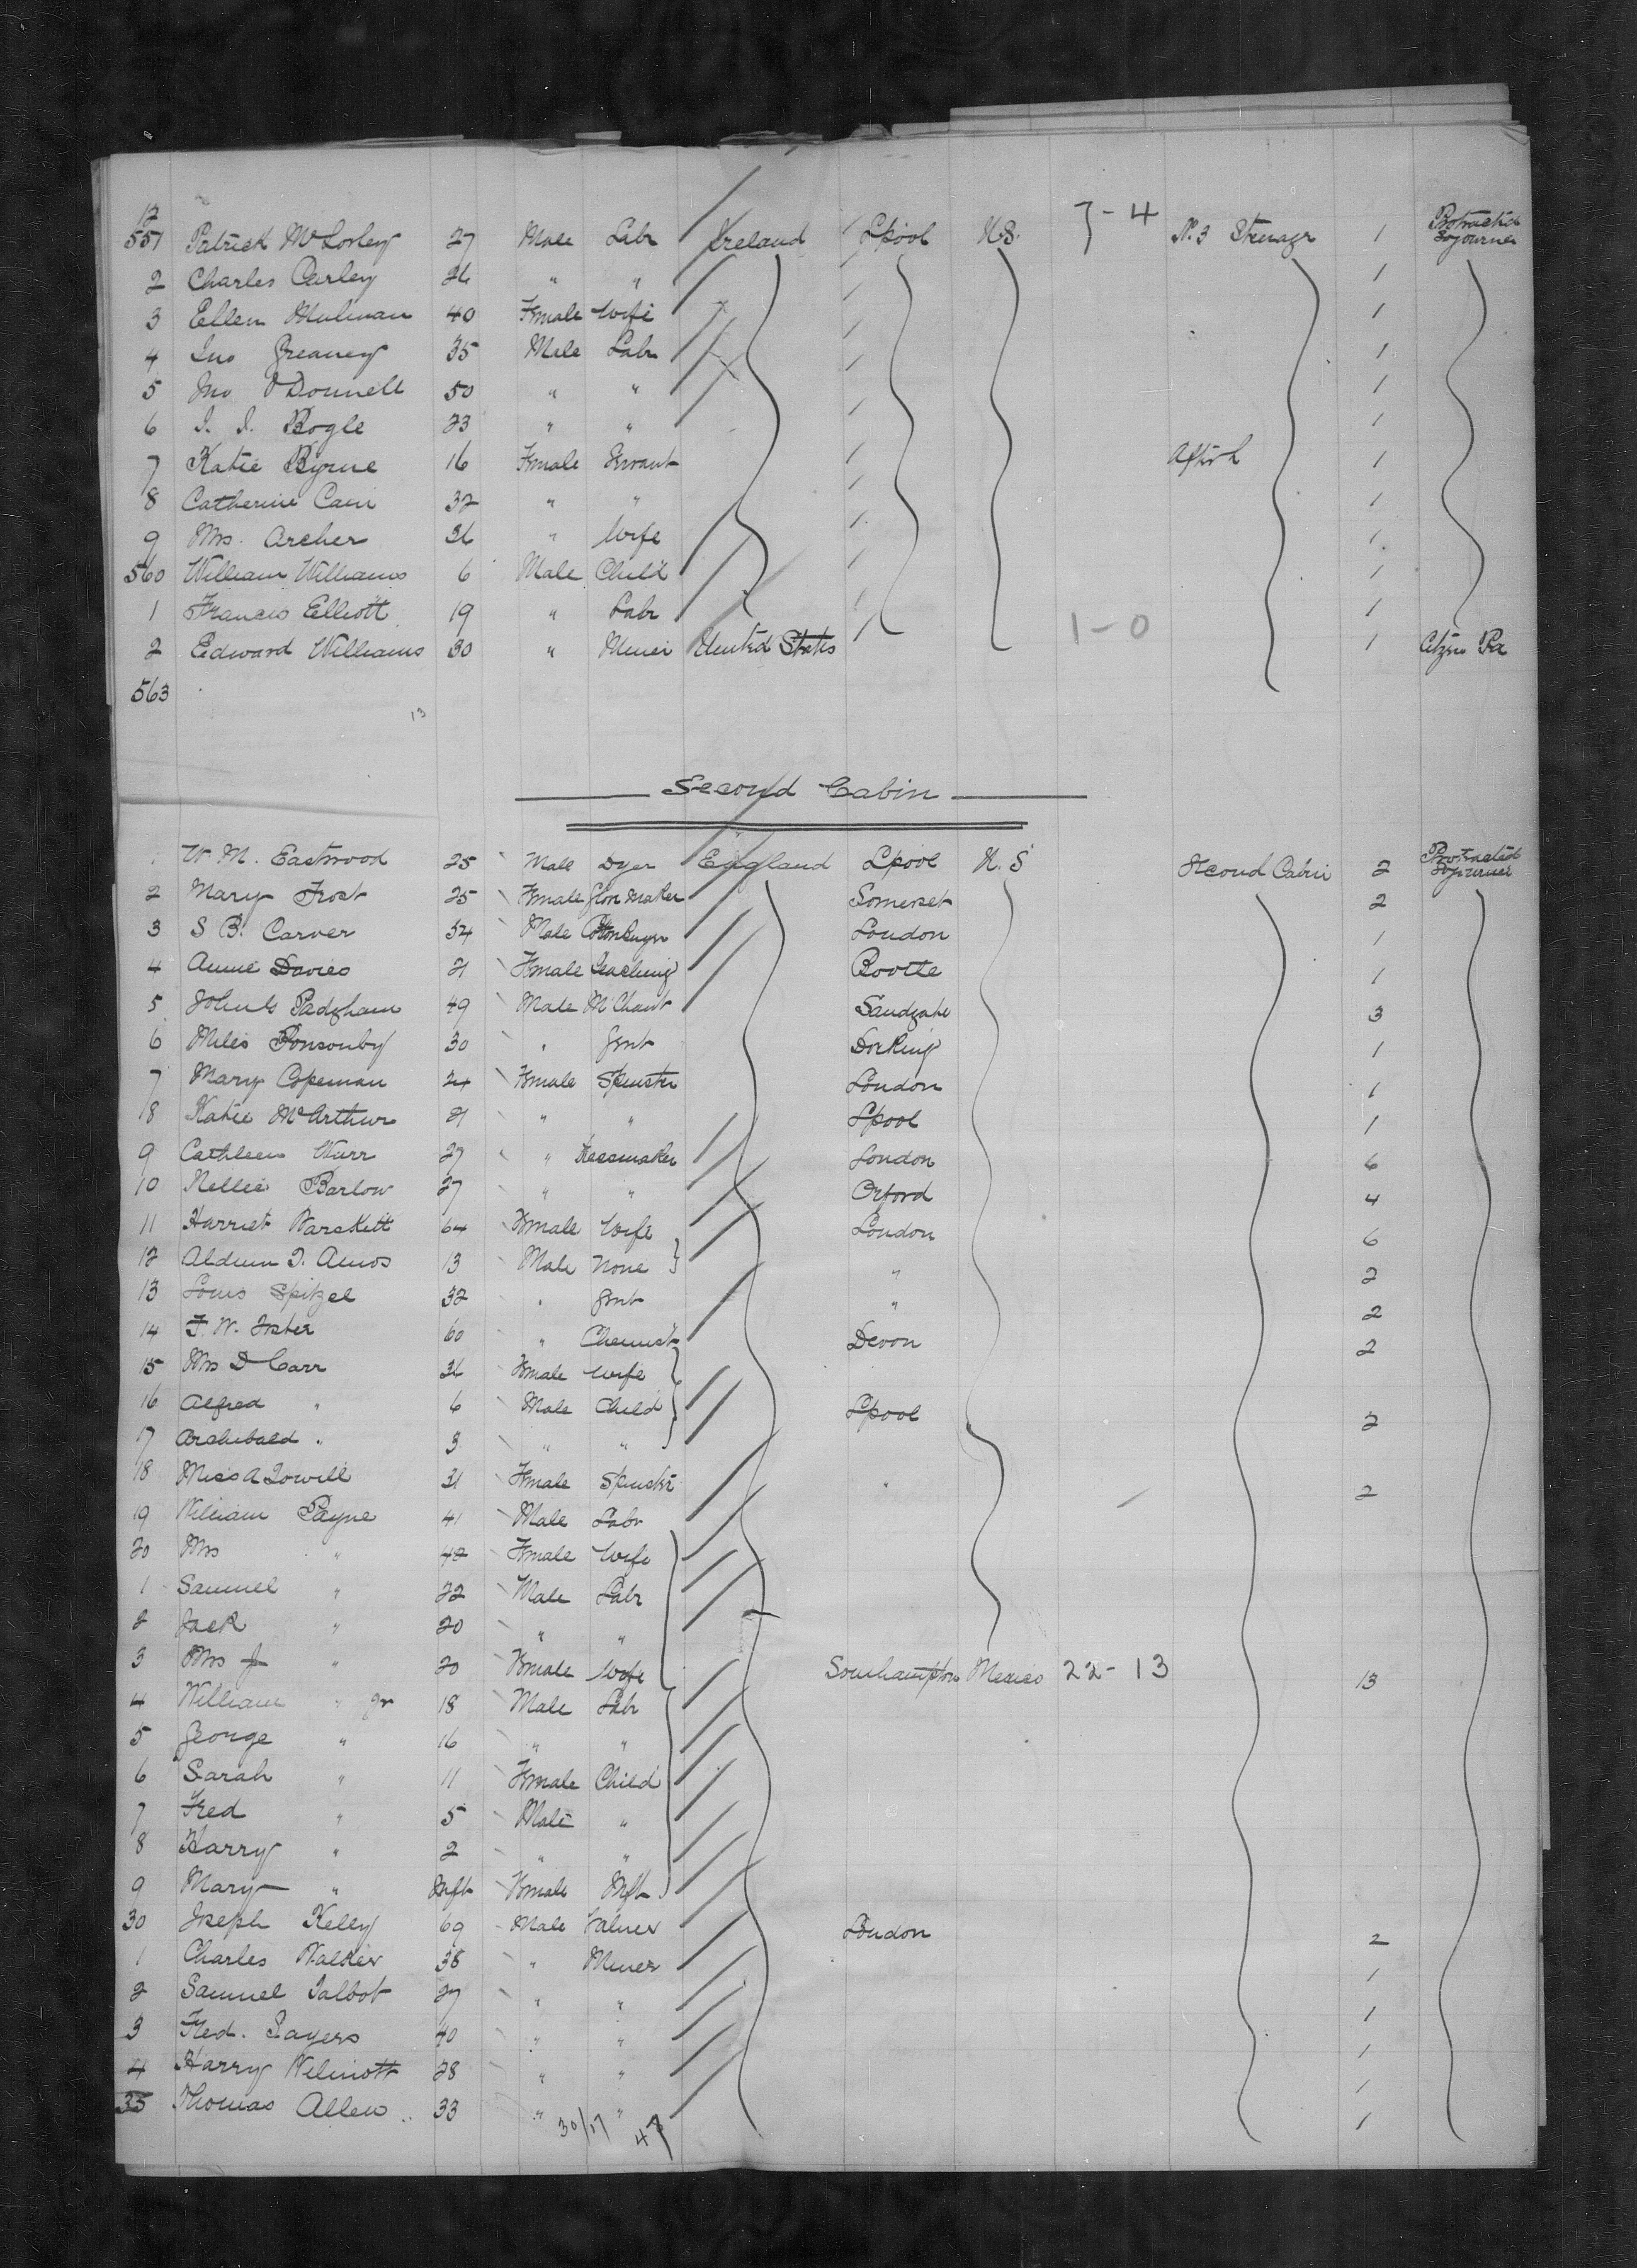 12
551 Patrick McSorley 27 Male Labr Ireland L'pool U.S. 7-4 N.3 Steerage 1 Protracted Sojourner
2 Charles Carley 26 " " 1
3 Ellen Mulman 40 Female Wife 1
4 Jno Greaney 35 Male Labr 1
5 Jno O'Donnell 50 " " 1
6 J. J. Bogle 23 " " 1
7 Katie Byrne 16 Female Servant 1
8 Catherine Cain 32 " " 1
9 Mrs. Archer 36 " Wife 1
560 William Williams 6 Male Child 1
1 Francis Elliott 19 " Labr 1
2 Edward Williams 30 " Miner United States 1-0 1 Citizen Pa
563
13
Second Cabin
1 W. M. Eastwood 25 Male Dyer England L'pool U.S Second Cabin 2 Protracted Sojourner
2 Mary Frost 25 Female Glov Maker Somerset 2
3 S B. Carver 54 Male Cottonbuyer London 1
4 Annie Davies 21 Female Teaching Bootle 1
5 John G Padgham 49 Male M'Chant Sandgate 3
6 Miles Ponsonby 30 " Gent Dorking 1
7 Mary Copeman 24 Female Spinster London 1
8 Katie McArthur 21 " " L'pool 1
9 Cathleen Wurr 27 " Dressmaker London 6
10 Nellie Barlow 27 " " Oxford 4
11 Harriet Warskitt 64 Female Wife London 6
12 T. Amos 13 Male None " 2
13 Louis Spitzel 32 " Gent " 2
14 F. W. 60 " Chemist Devon 2
15 Mrs D Carr 36 Female Wife
16 Alfred " 6 Male Child L'pool 2
17 Archibald " 3 " "
18 Miss A Towill 31 Female Spinster " 2
19 William Payne 41 Male Labr
20 Mrs " 42 Female Wife
1 Samuel " 22 Male Labr
2 Jack " 20 " "
3 Mrs J " 20 Female Wife Southampton Mexico 22-13 13
4 William " Jr 18 Male Labr
5 George " 16 " "
6 Sarah " 11 Female Child
7 Fred " 5 Male "
8 Harry " 2 " "
9 Mary " Inft Female Inft
30 Joseph Kelly 69 Male London 2
1 Charles Walker 38 " Miner 1
2 Samuel Talbot 27 " " 1
3 Fred. Sayers 40 " " 1
4 Harry Wilmott 28 " " 1
35 Thomas Allen 33 " " 1
30/17 47